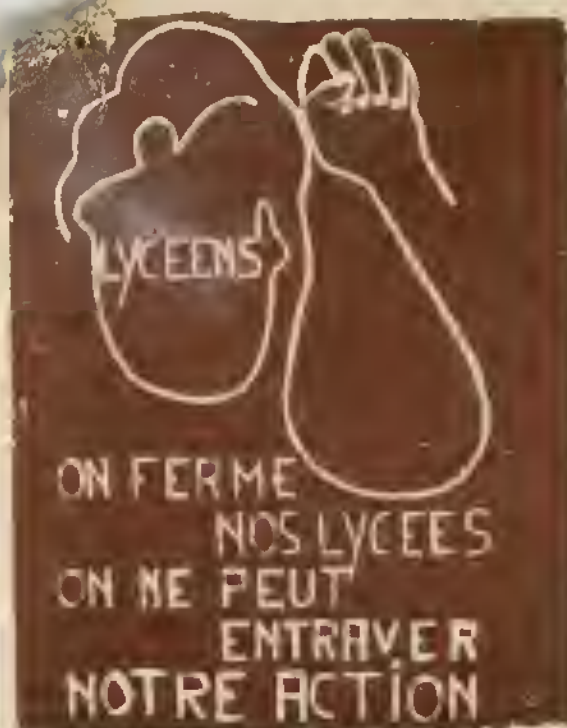 LYCEENS
ON FERME
NOS LYCEES
ON NE PEUT
ENTRAVER
NOTRE ACTION